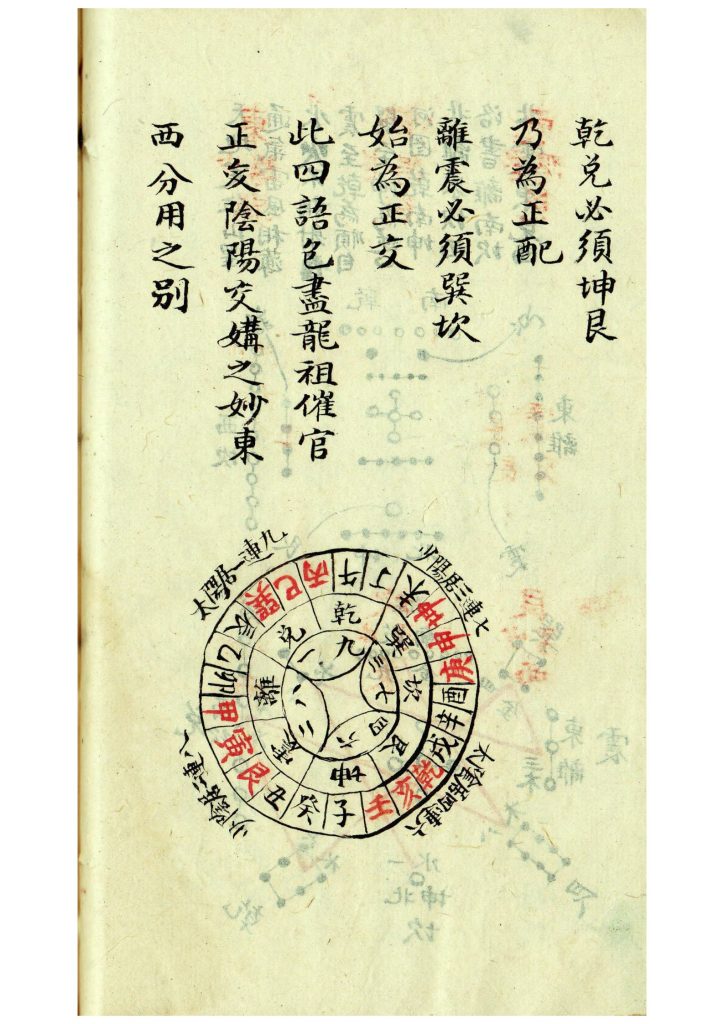 乾兌必須坤艮
乃為正配
離震必須巽坎
始為正交
此四語包盡龍祖催官
正变陰陽交媾之妙東
西分用之別
太陽居一連九
少陽居三連七
太陰居四連六
少陰居二連八
午丁未坤申庚酉辛戌乾亥壬子癸丑艮寅甲卯乙辰巽巳丙
乾巽坎艮坤震離兌
九三七四六二八一